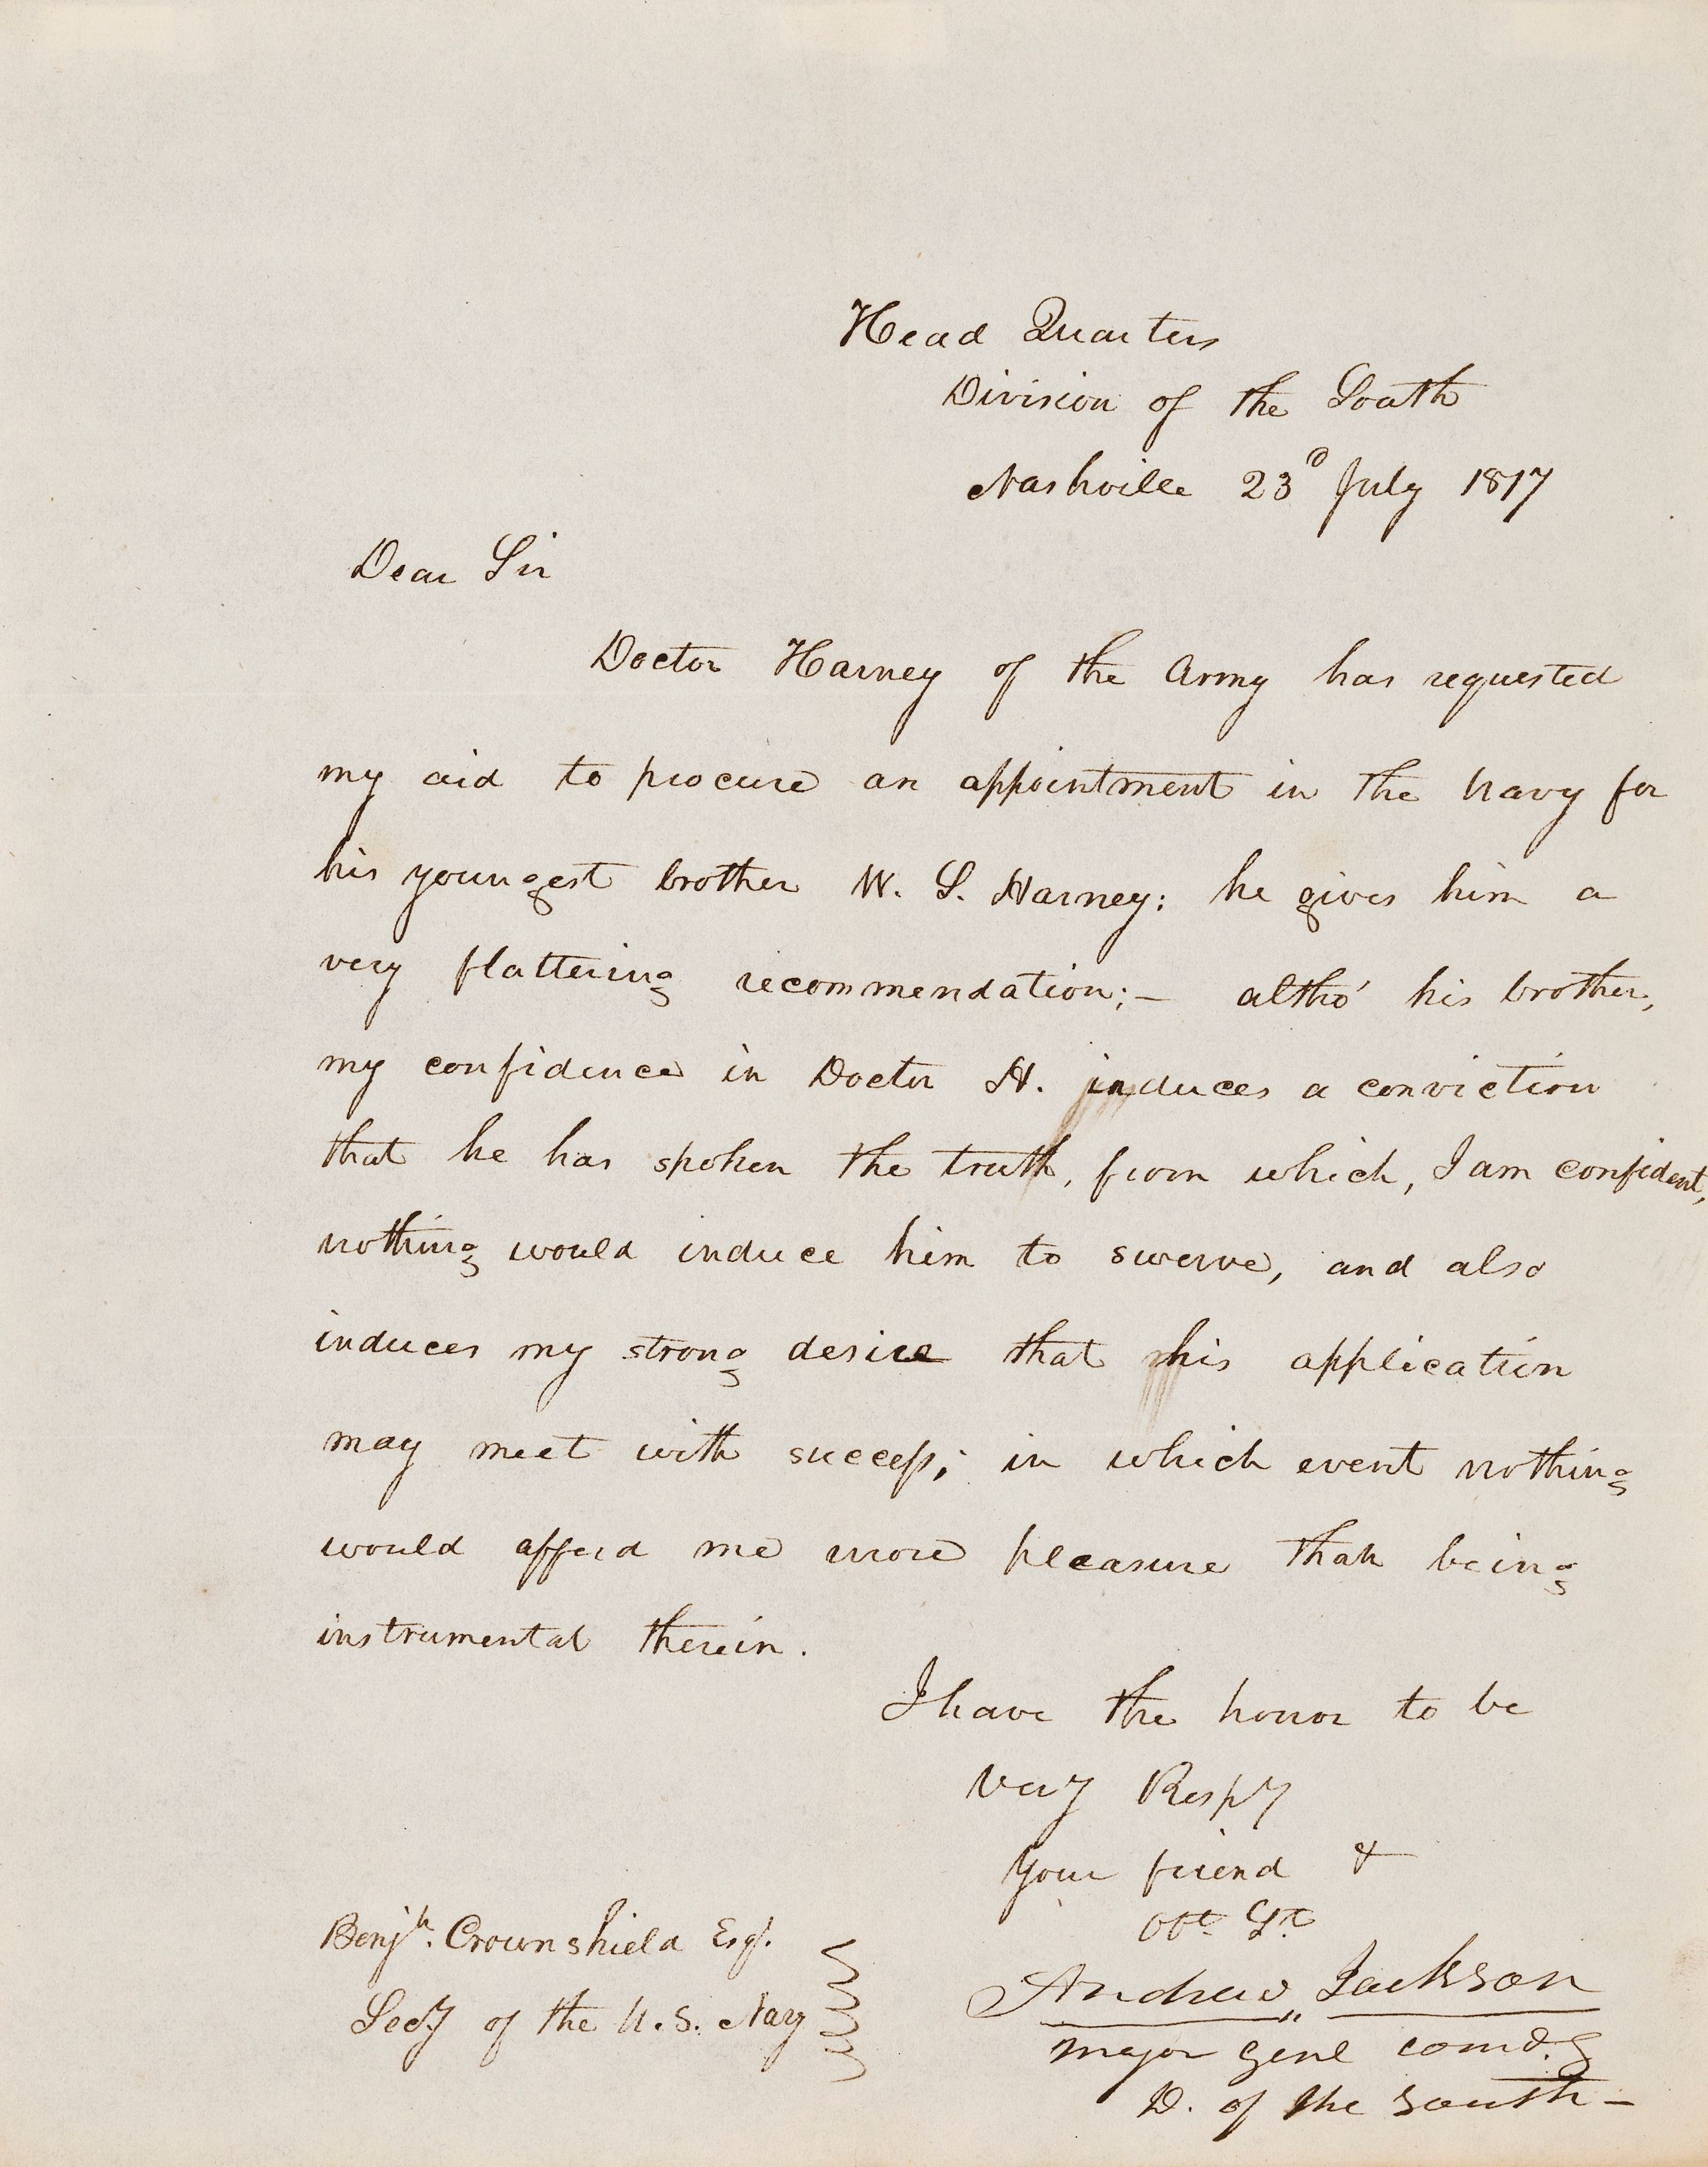 Head Quarters
Division of the South
Nashville 23d July 1817
Dear Sir
Doctor Harney of the Army has requested
my aid to procure an appointment in the Navy for
his youngest brother W. S. Harney: he gives him a
very flattering recommendation;— altho' his brother,
my confidence in Doctor H. induces a conviction
that he has spoken the truth, from which, I am confident,
nothing would induce him to swerve, and also
induces my strong desire that his application
may meet with success; in which event nothing
would afford me more pleasure than being
instrumental therein.
I have the honor to be
Very Respy
Your friend &
obt St.
Andrew Jackson
Major Genl comdg
D. of the South—
Benjn. Crownshield Esqr.
Secy of the U.S. Navy